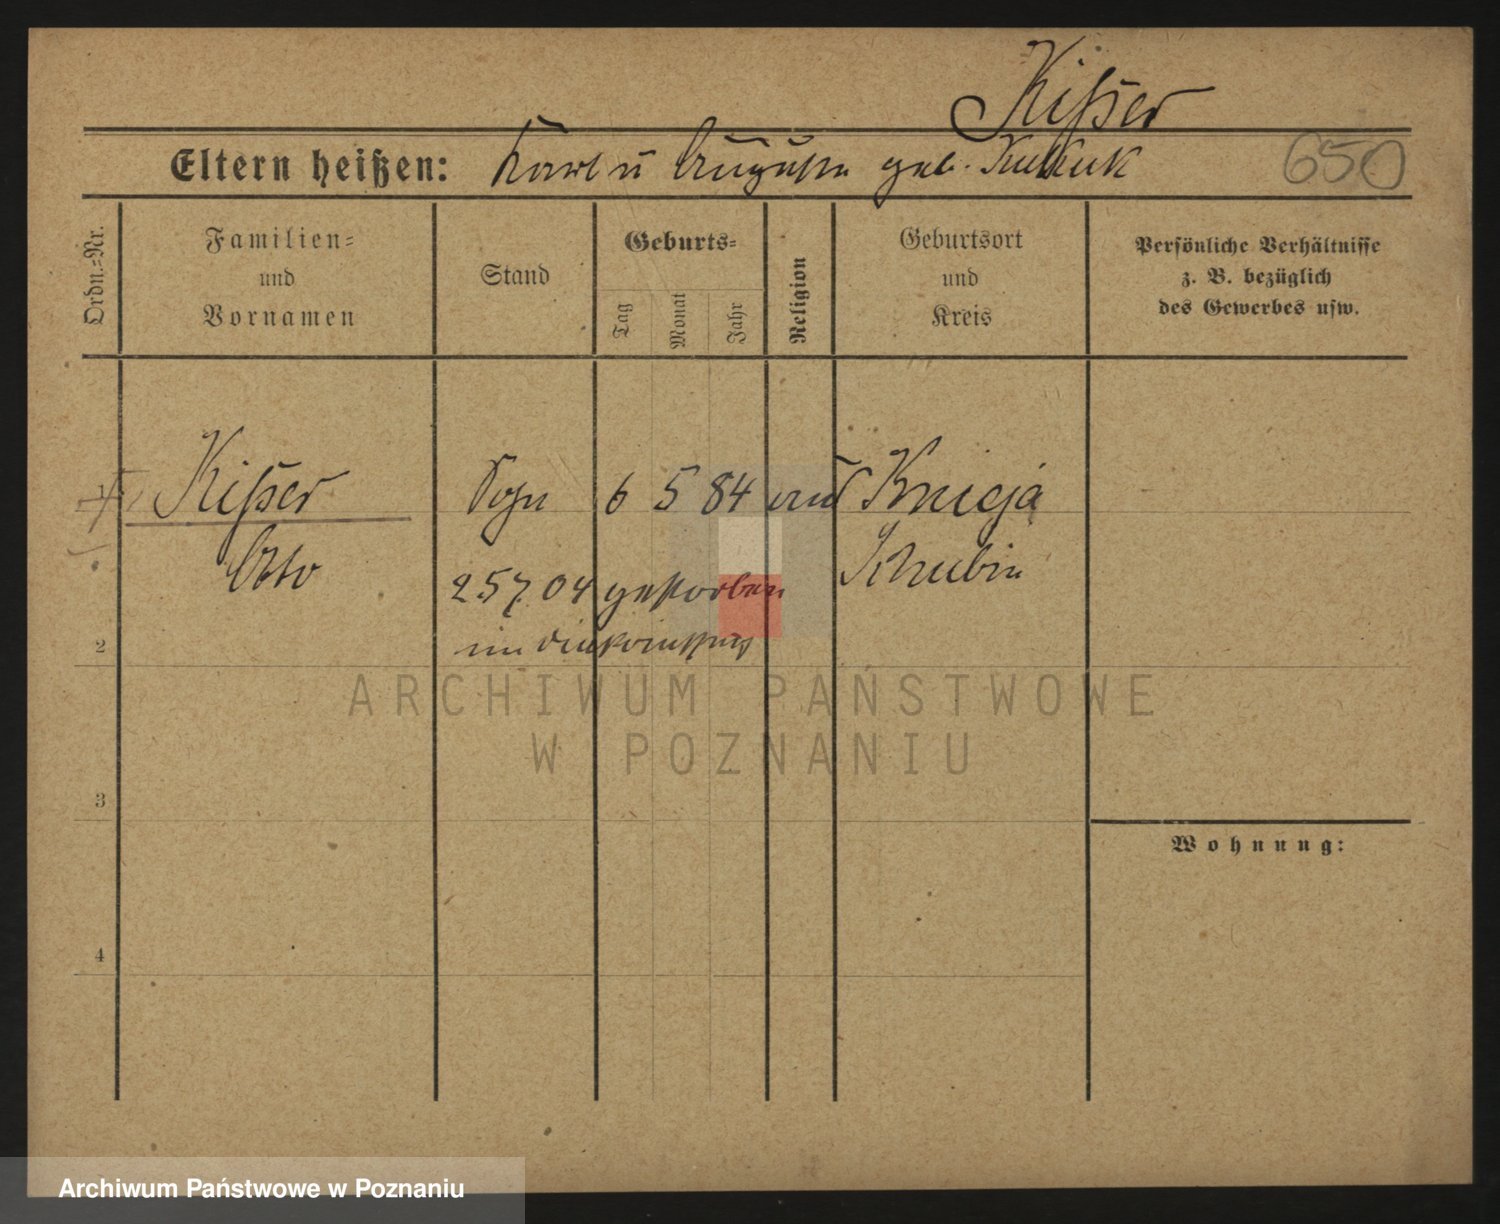 Kißer
Eltern heißen: Karl u Auguste geb. Kukuk 650
Ordn.=Nr.
Familien=
und
Vornamen
Stand
Geburts=
Tag Monat Jahr
Religion
Geburtsort
und
Kreis
Persönliche Verhältnisse
z. B. bezüglich
des Gewerbes usw.
Kißer Sohn 6 5 84 Knieja
Otto Schubin
25 7. 04 gestorben
im
2
ARCHIWUM PAŃSTWOWE
W POZNANIU
3
Wohnung:
4
Archiwum Państwowe w Poznaniu